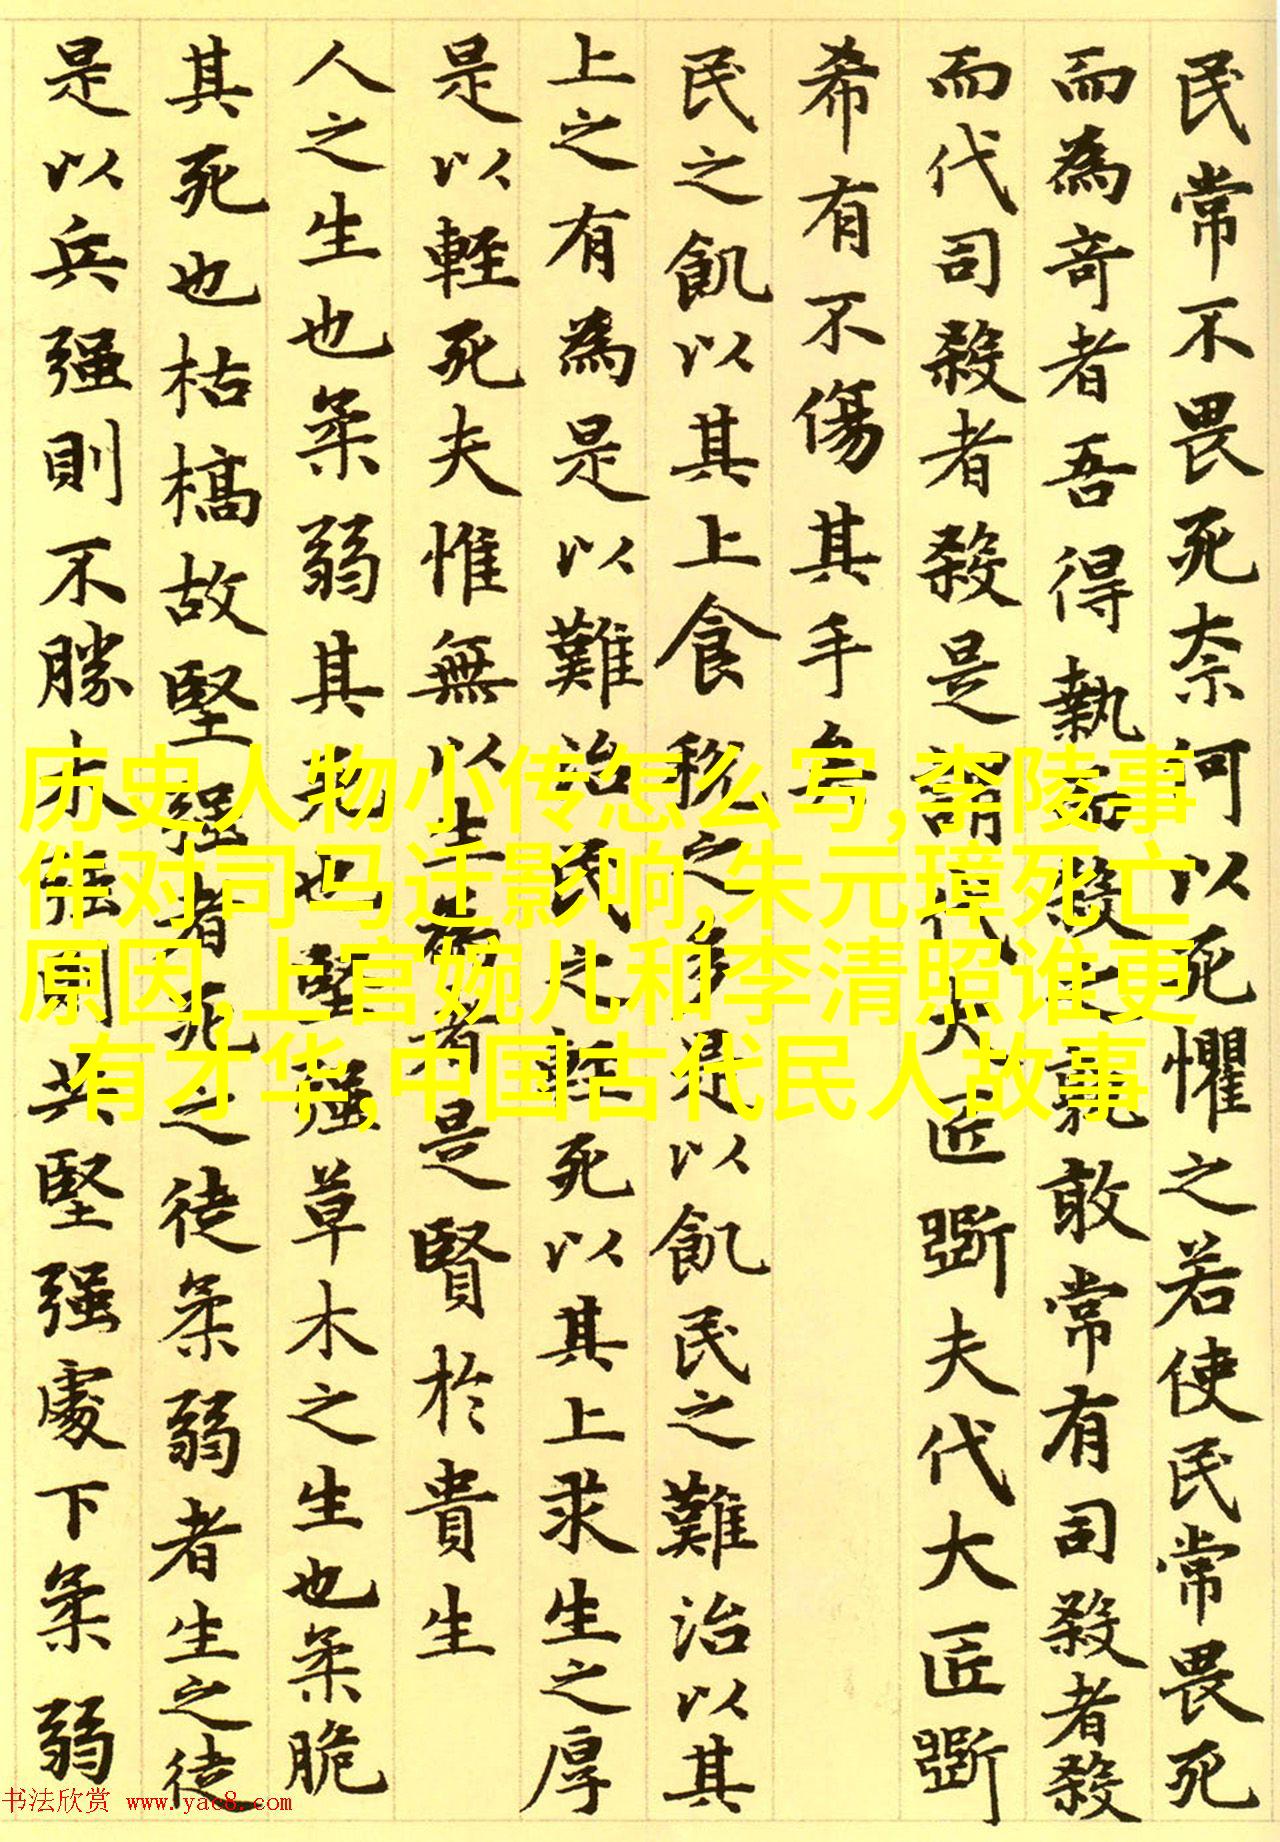 民常不畏死奈何以死懼之若使民常畏死
而為奇者吾得執而殺之孰敢常有司殺者殺
而代司殺者殺是謂代大匠斲夫代大匠斲
希有不傷其手矣
民之飢以其上食稅之多是以飢民之難治以其
上之有為是以難治民之輕死以其上求生之厚
是以輕死夫惟無以生為者是賢於貴生
人之生也柔弱其死也堅強草木之生也柔脆
其死也枯槁故堅强者死之徒柔弱者生之徒
是以兵强則不勝木強則共堅强處下柔弱
历史人物小传怎么写,李陵事
件对司马迁影响,朱元璋死亡
原因,上官婉儿和李清照谁更
有才华,中国古代民人故事
书法欣赏 www.yac8.com